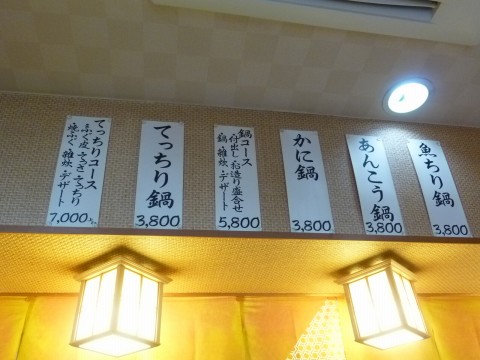 魚ちり鍋
3,800
あんこう鍋
3,800
かに鍋
3,800
鍋コース
付出し お造り盛合せ
鍋 雑炊・デザート
5,800
てっちり鍋
3,800
てっちりコース
焼ふぐ 雑炊・デザート
7,000